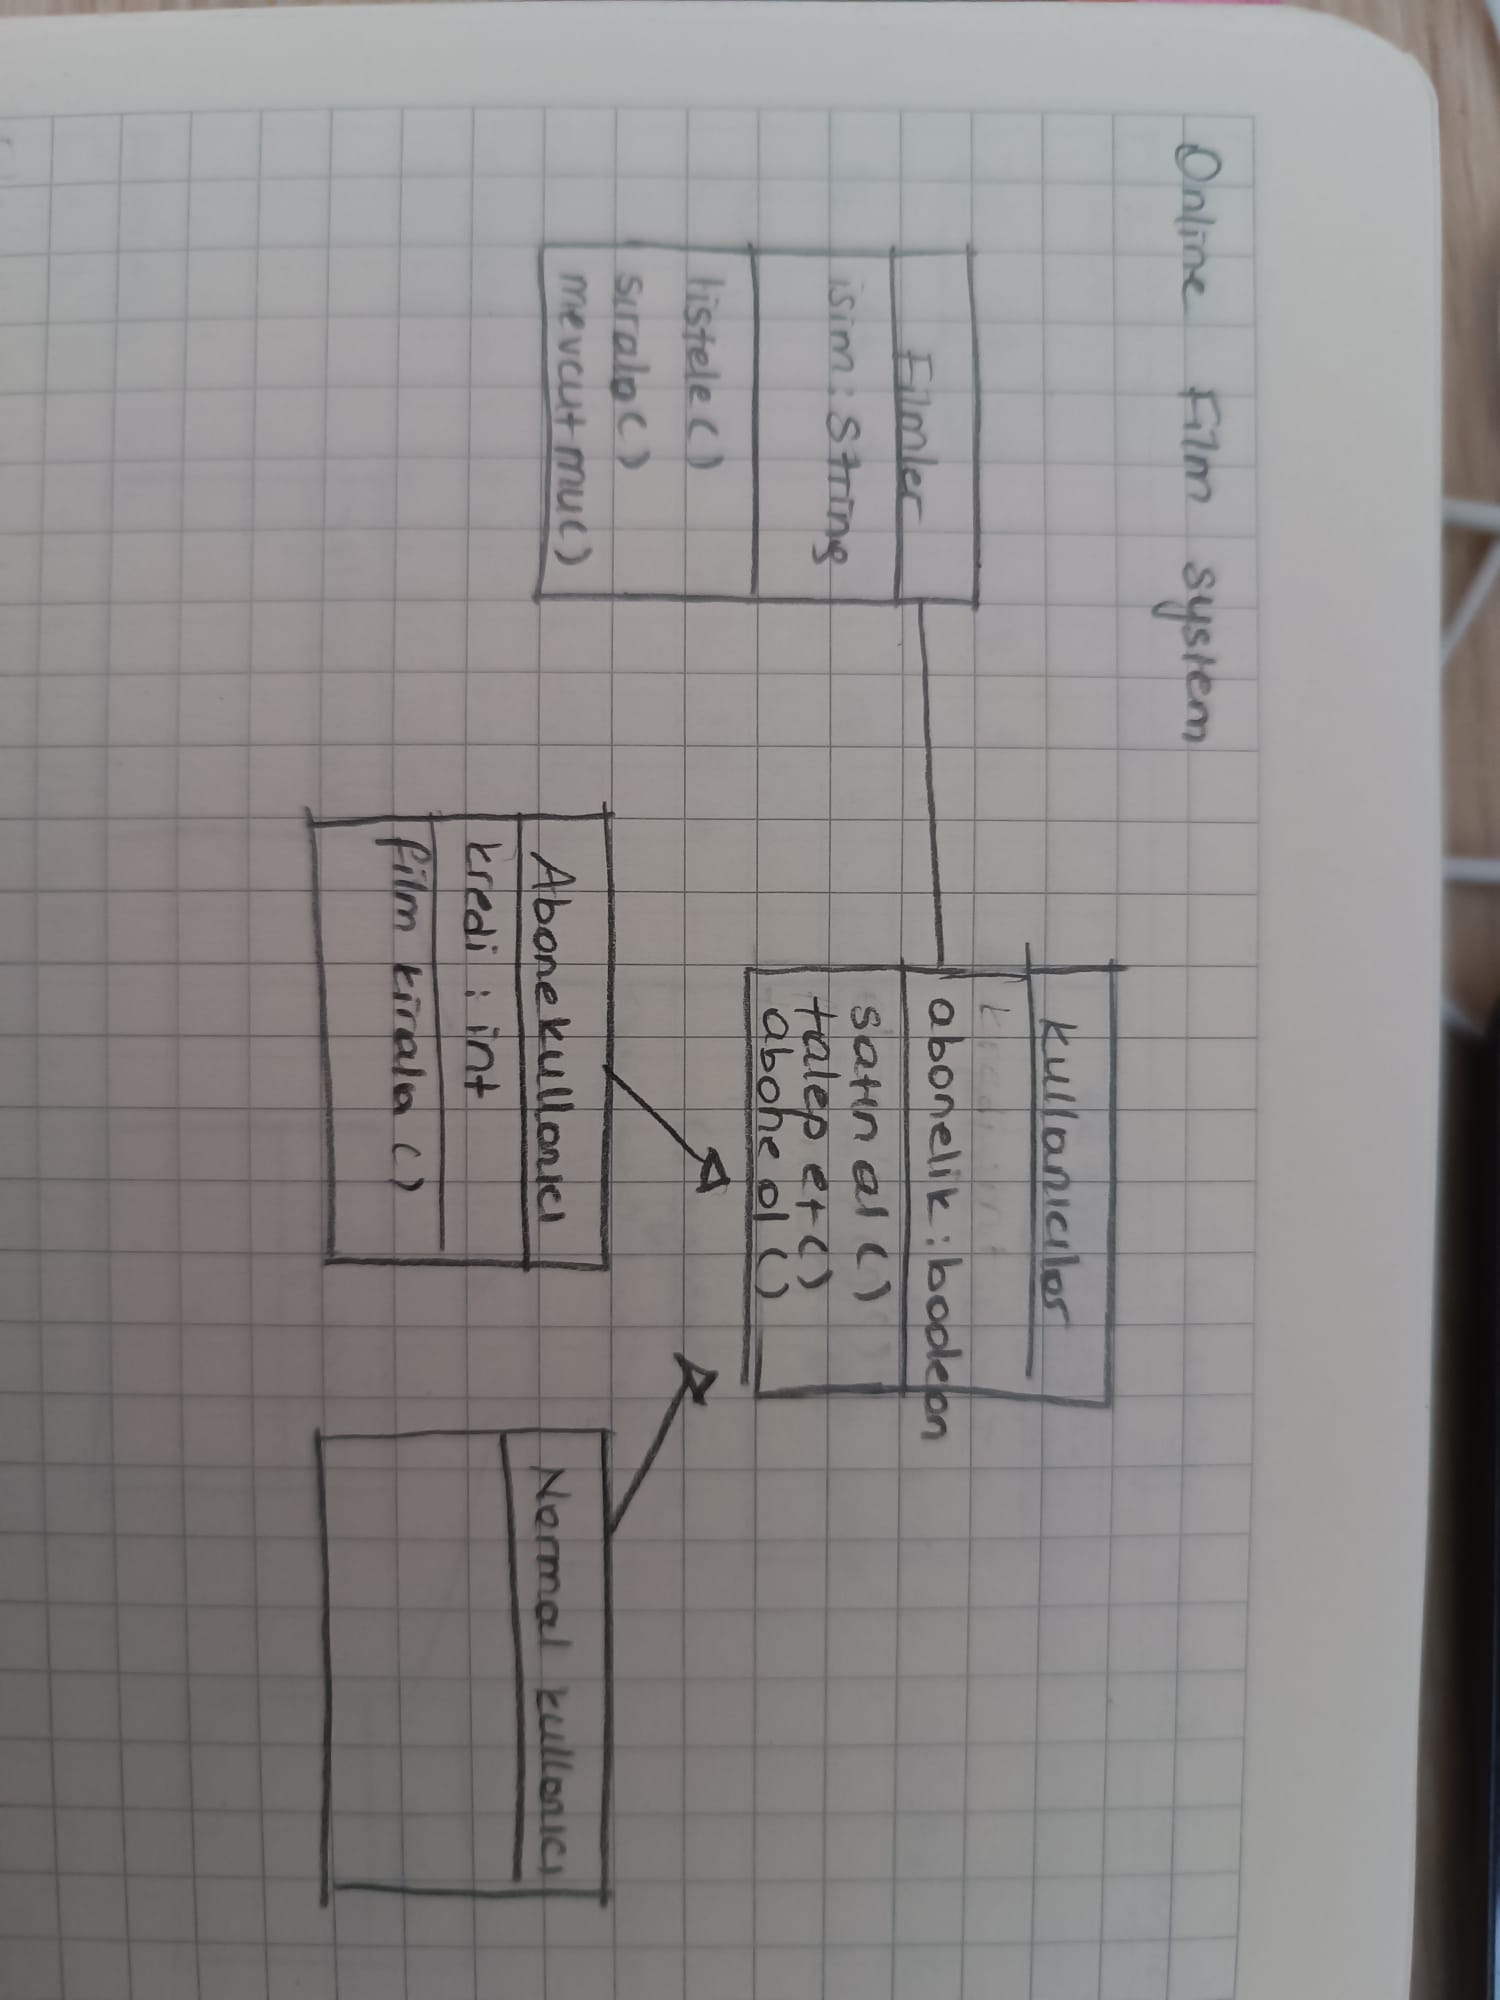 Online Film system
Filmler
isim : String
listele ( )
sırala ( )
mevcut mu ( )
kullanıcılar
kredi : int
abonelik : boolean
satın al ( )
talep et ( )
abone ol ( )
Abone kullanıcı
kredi : int
film kirala ( )
Normal kullanıcı